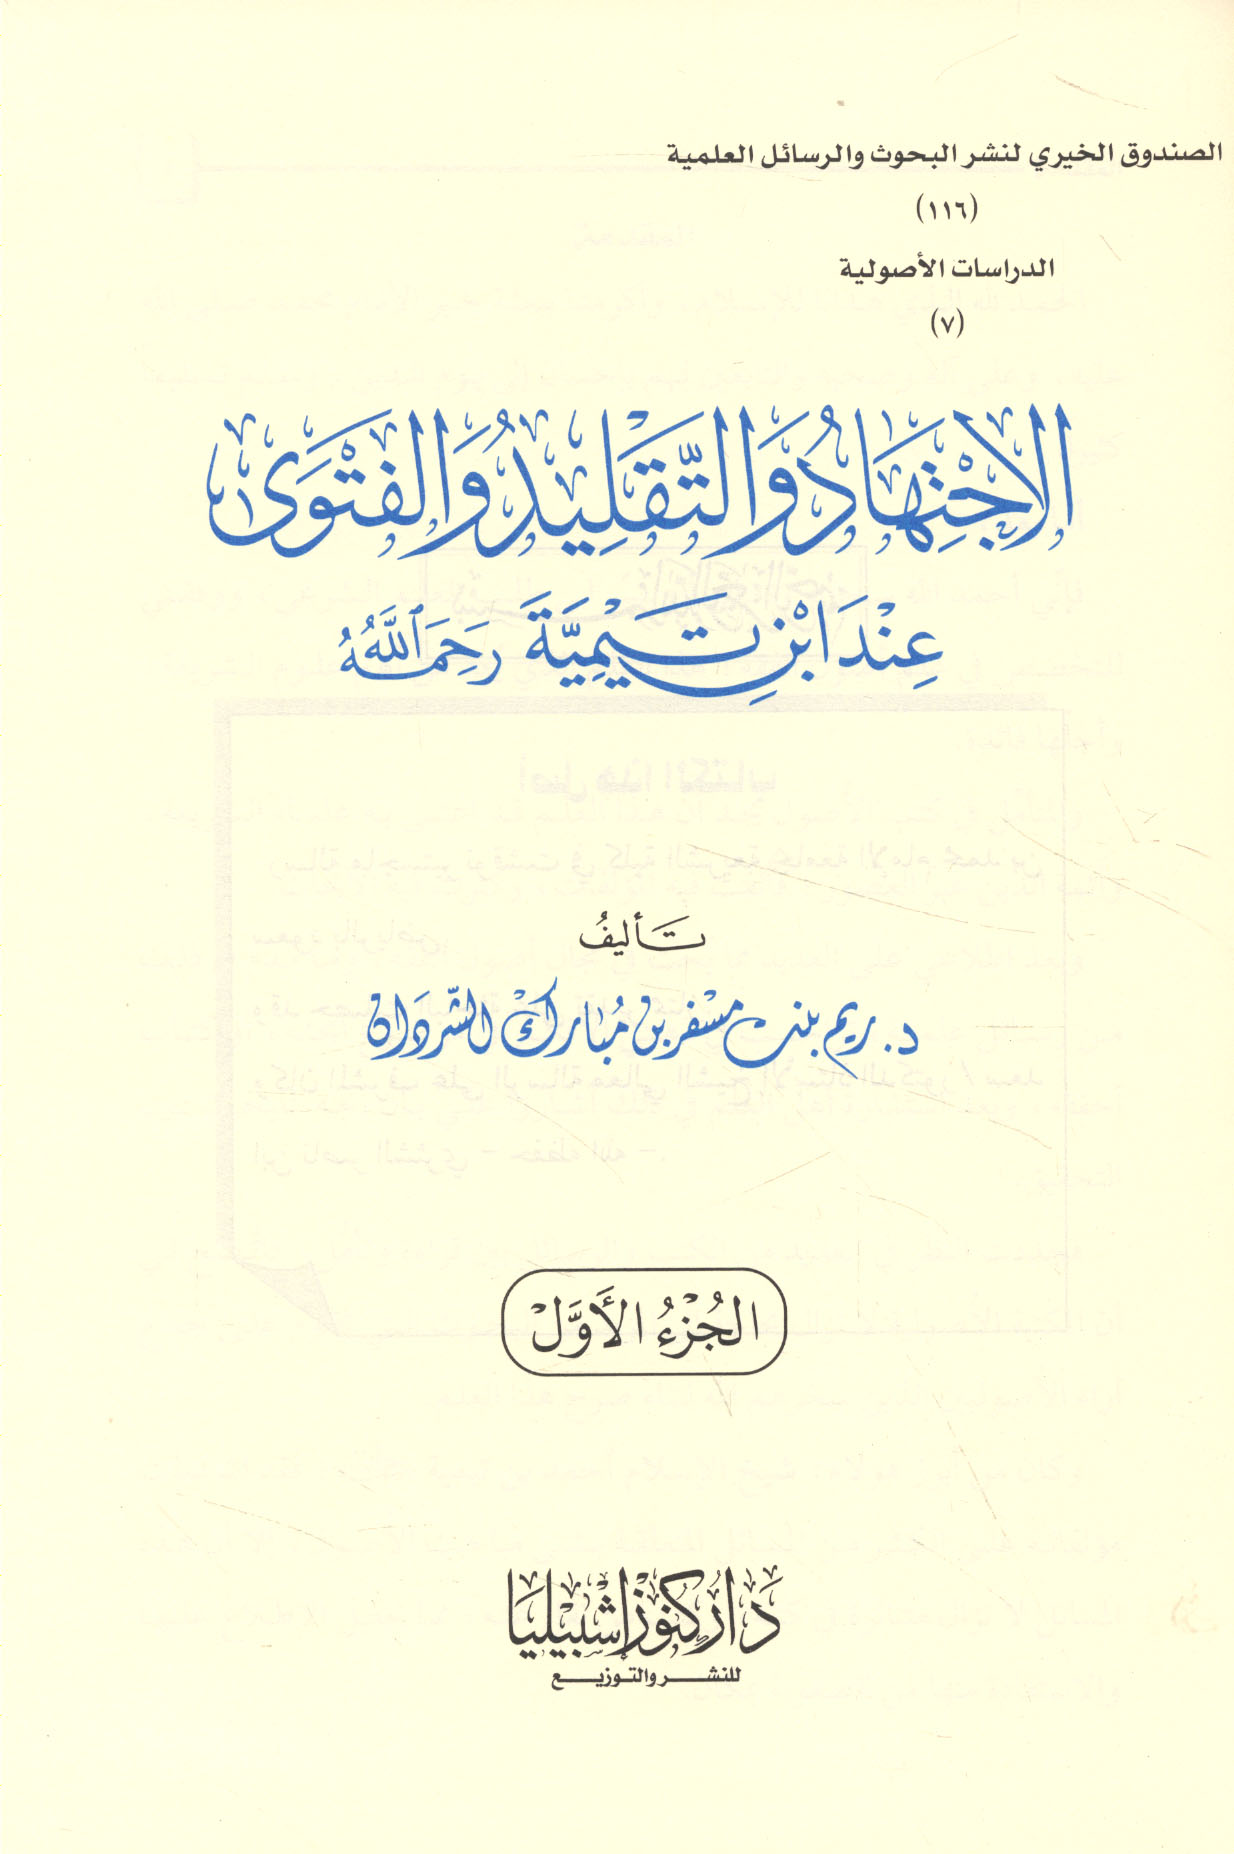 الصندوق الخيري لنشر البحوث والرسائل العلمية
(١١٦)
الدراسات الأصولية
(٧)
الاِجْتِهَادُ وَالتَّقْلِيدُ وَالفَتْوَى
عِنْدَ ابْنِ تَيْمِيَّةَ رَحِمَهُ اللَّهُ
تَأليفُ
د. ريم بنت مسفر بن مُبارك الشّردَان
الجُزْءُ الأَوَّلْ
دَار كُنُوز إشْبيليَا
للنشر والتوزيع